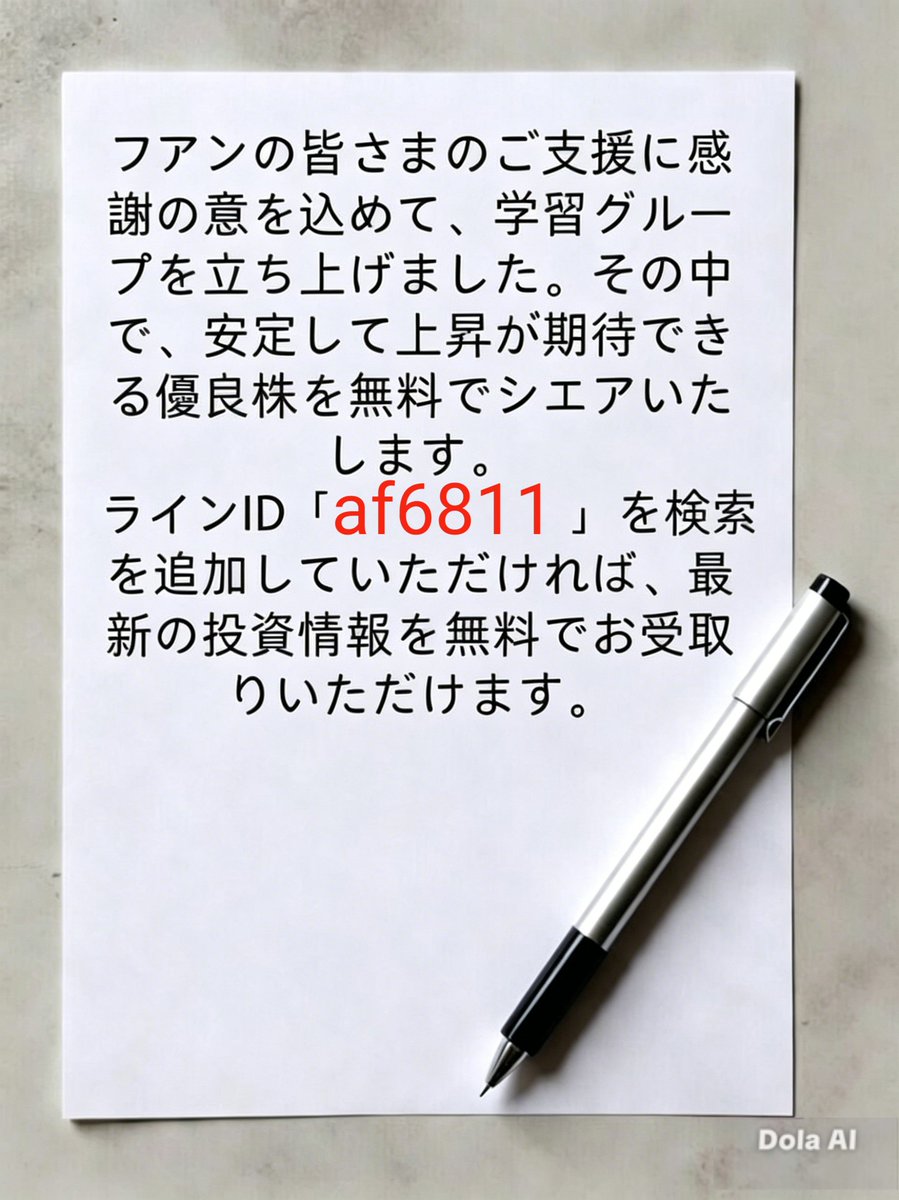 フアンの皆さまのご支援に感
謝の意を込めて、学習グルー
プを立ち上げました。その中
で、安定して上昇が期待でき
る優良株を無料でシエアいた
します。
ラインID「af6811 」を検索
を追加していただければ、最
新の投資情報を無料でお受取
りいただけます。
Dola AI